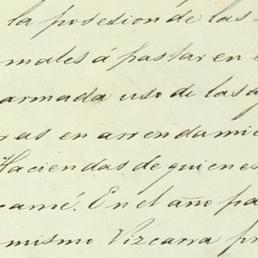 la posesion de las
males á pastar en
armada uso de las
ras en arrendamie
Haciendas de quienes
camé. En el año pa
mismo Vizcarra pr